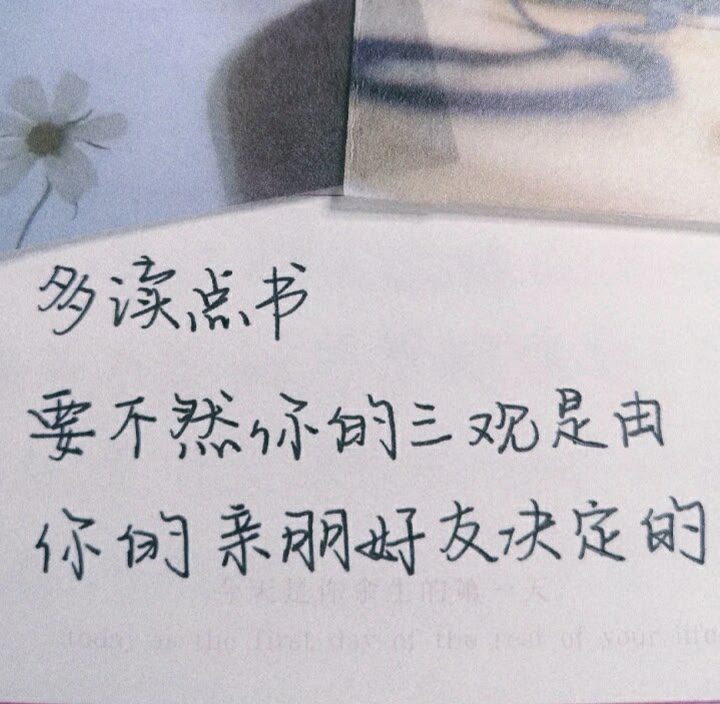 多读点书
要不然你的三观是由
你的亲朋好友决定的
今天是你余生的第一天
today is the first day of the rest of your